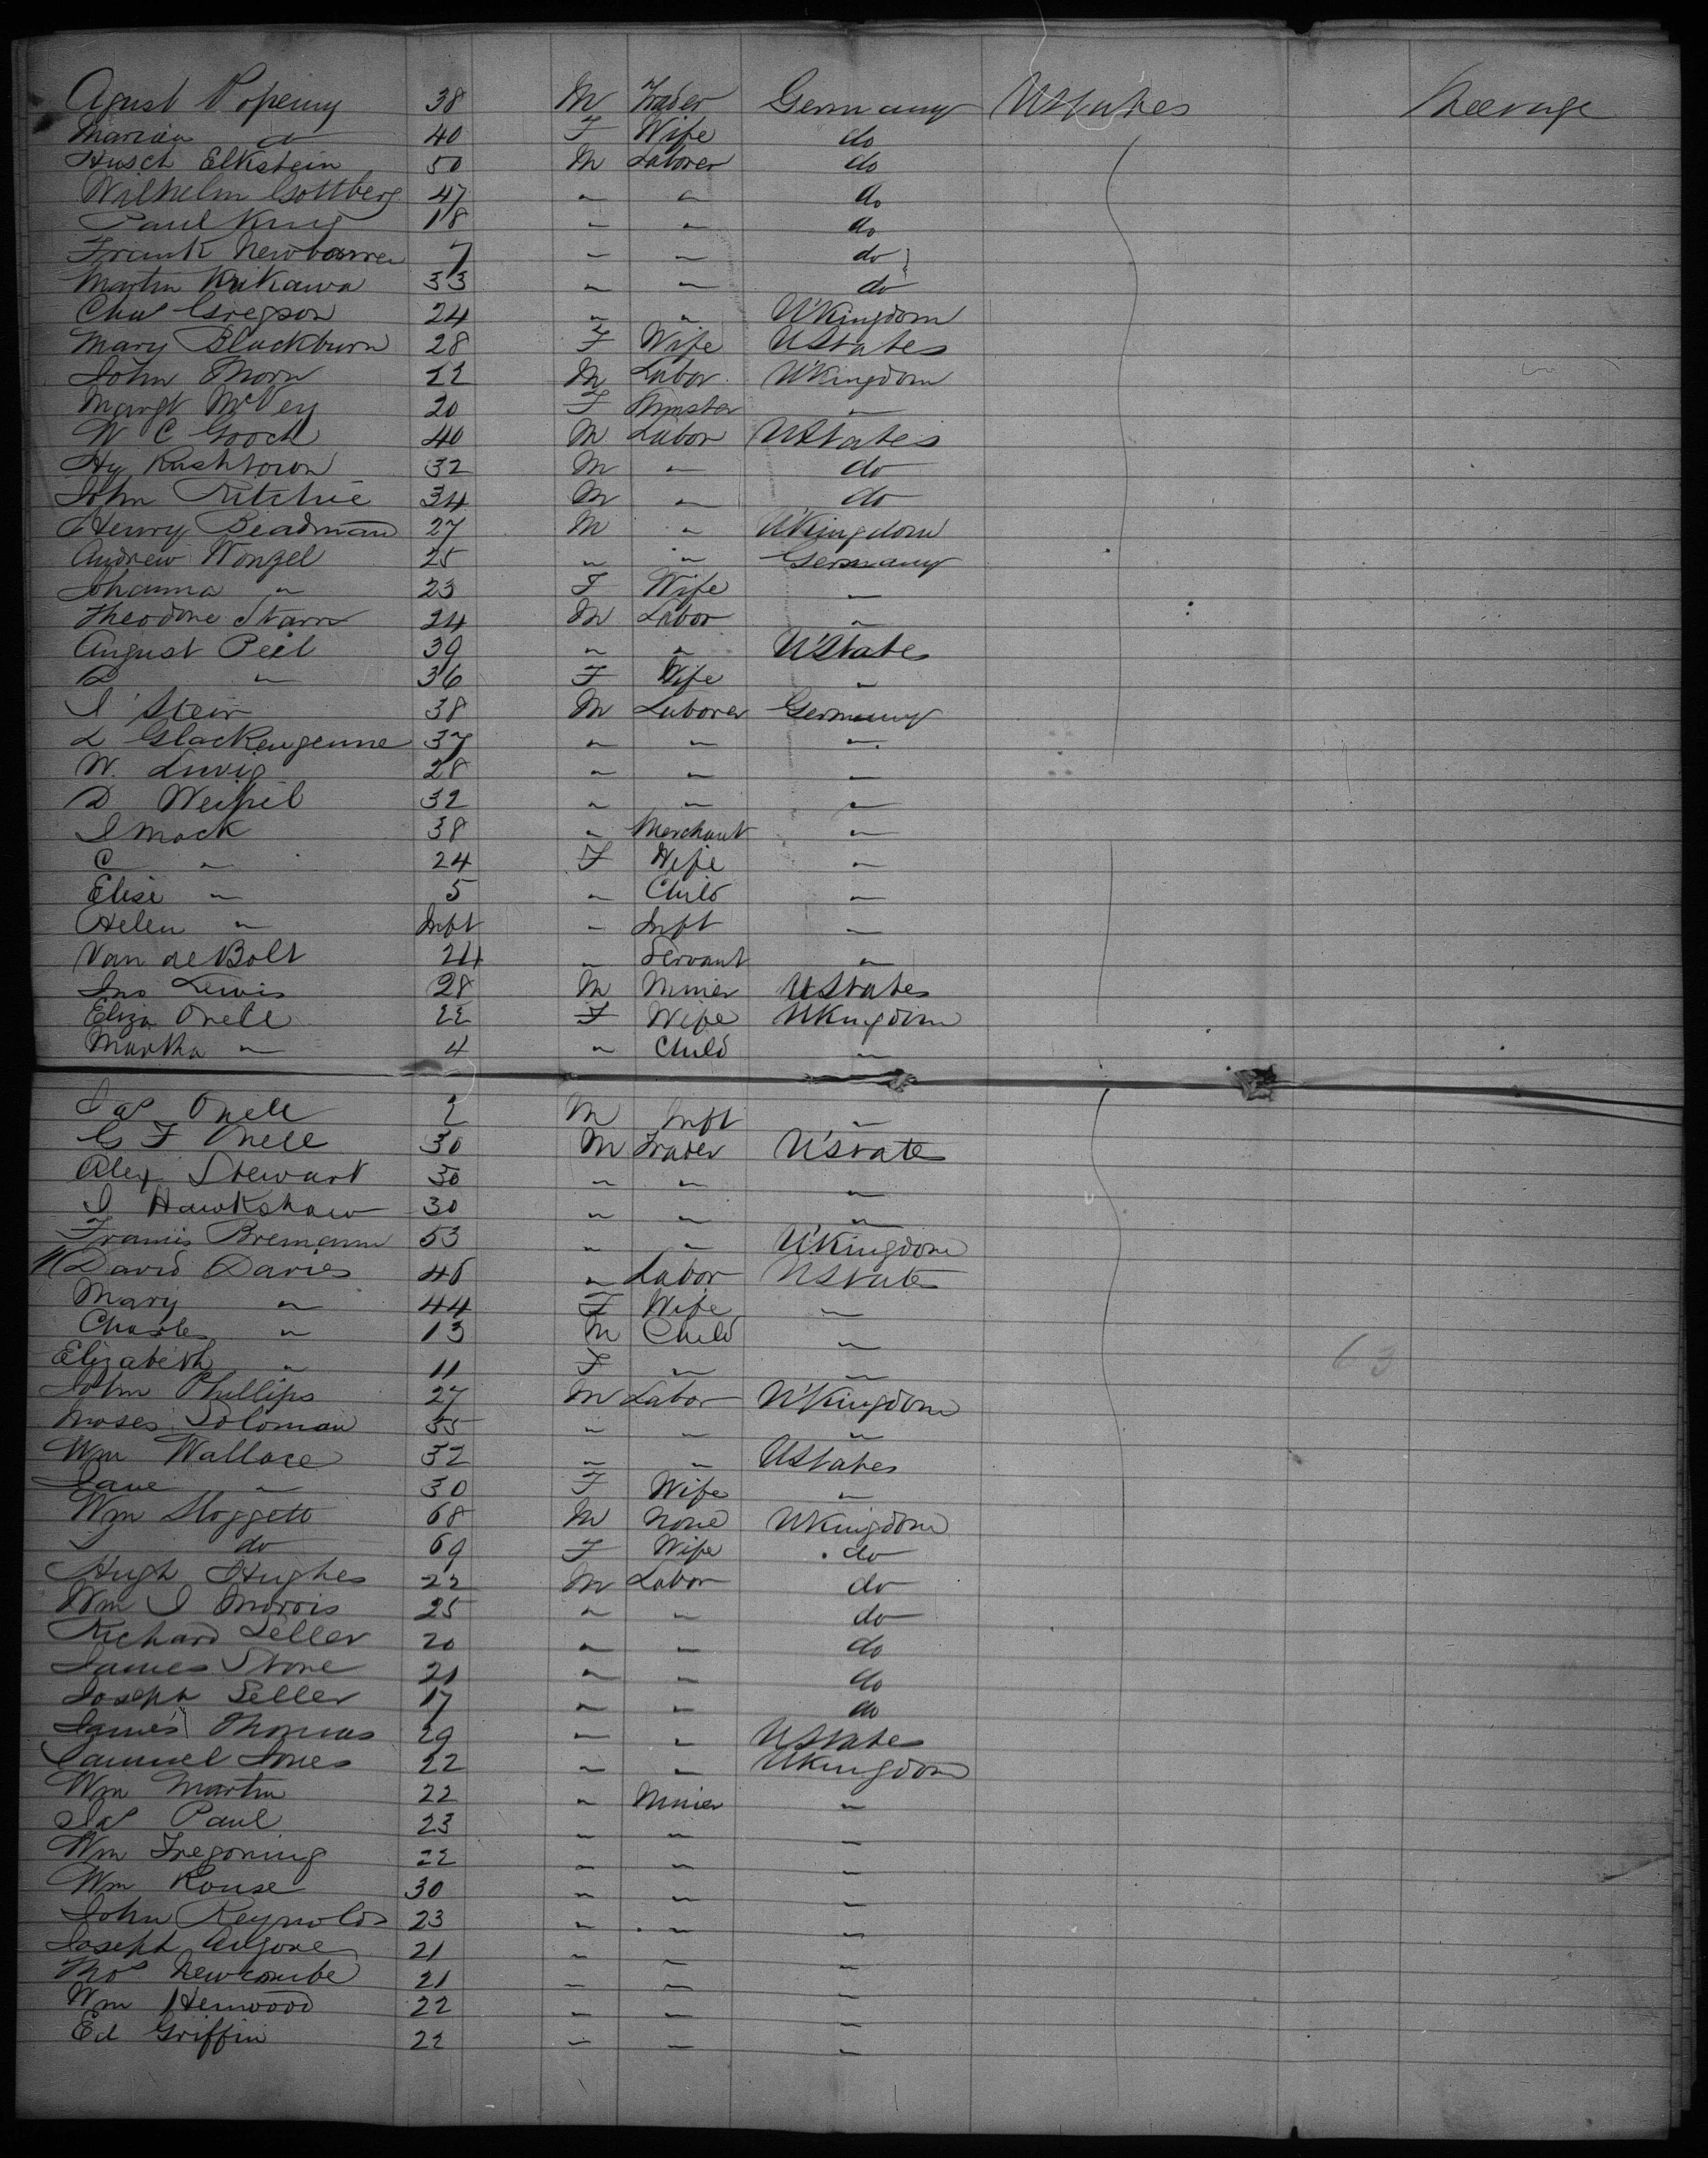 Agust Popenny 38 M Trader Germany UStates Steerage
Marian do 40 F Wife do
Husch Elkstein 50 M Laborer do
Wilhelm Gottberg 47 " " do
Paul Krug 18 " " do
Frank Newbarren 7 " " do
Martin Krikawa 33 " " do
Chas Gregson 24 " " U'Kingdom
Mary Blackburn 28 F Wife UStates
John Thorn 22 M Labor U'Kingdom
Margt McVey 20 F "
W C Gooch 40 M Labor UStates
Hy Rushtown 32 M " do
John Ritchie 34 M " do
Henry Beadman 27 M " U'Kingdom
Andrew Wongel 25 " " Germany
Johanna " 23 F Wife "
Theodore Starr 24 M Labor "
August Peil 39 " " U'States
" 36 F Wife "
I Steir 38 M Laborer Germany
L Glackengenne 37 " " "
W. Luvig 28 " " "
D 32 " " "
I Mack 38 " Merchant "
C " 24 F Wife "
Elise " 5 " Child "
Helen " Inft " Inft "
Van de Bolt 24 " Servant "
Jno Lewis 28 M Miner UStates
Eliza Onell 22 F Wife UKingdom
Martha " 4 " Child "
Jas Onell 2 M Inft "
G F Onell 30 M Trader U'States
Alex Stewart 30 " " "
I Hawkshaw 30 " " "
Francis Bremann 53 " " U'Kingdom
David Davies 46 " Labor UStates
Mary " 44 F Wife "
Charles " 13 M Child "
Elizabeth " 11 F " " 63
John Phillips 27 M Labor U'Kingdom
Moses Soloman 35 " " "
Wm Wallace 32 " " UStates
Jane " 30 F Wife "
Wm Sloggett 68 M None UKingdom
do 69 F Wife do
Hugh Hughes 22 M Labor do
Wm I Morris 25 " " do
Richard Seller 20 " " do
James Stone 21 " " do
Joseph Seller 17 " " do
James Thomas 29 " " UStates
Samuel Jones 22 " " UKingdom
Wm Martin 22 " Miner "
Jas Paul 23 " " "
Wm Tregoning 22 " " "
Wm Rouse 30 " " "
John Reynolds 23 " " "
Joseph Angove 21 " " "
Thos Newcombe 21 " " "
Wm Henwood 22 " " "
Ed Griffin 22 " " "